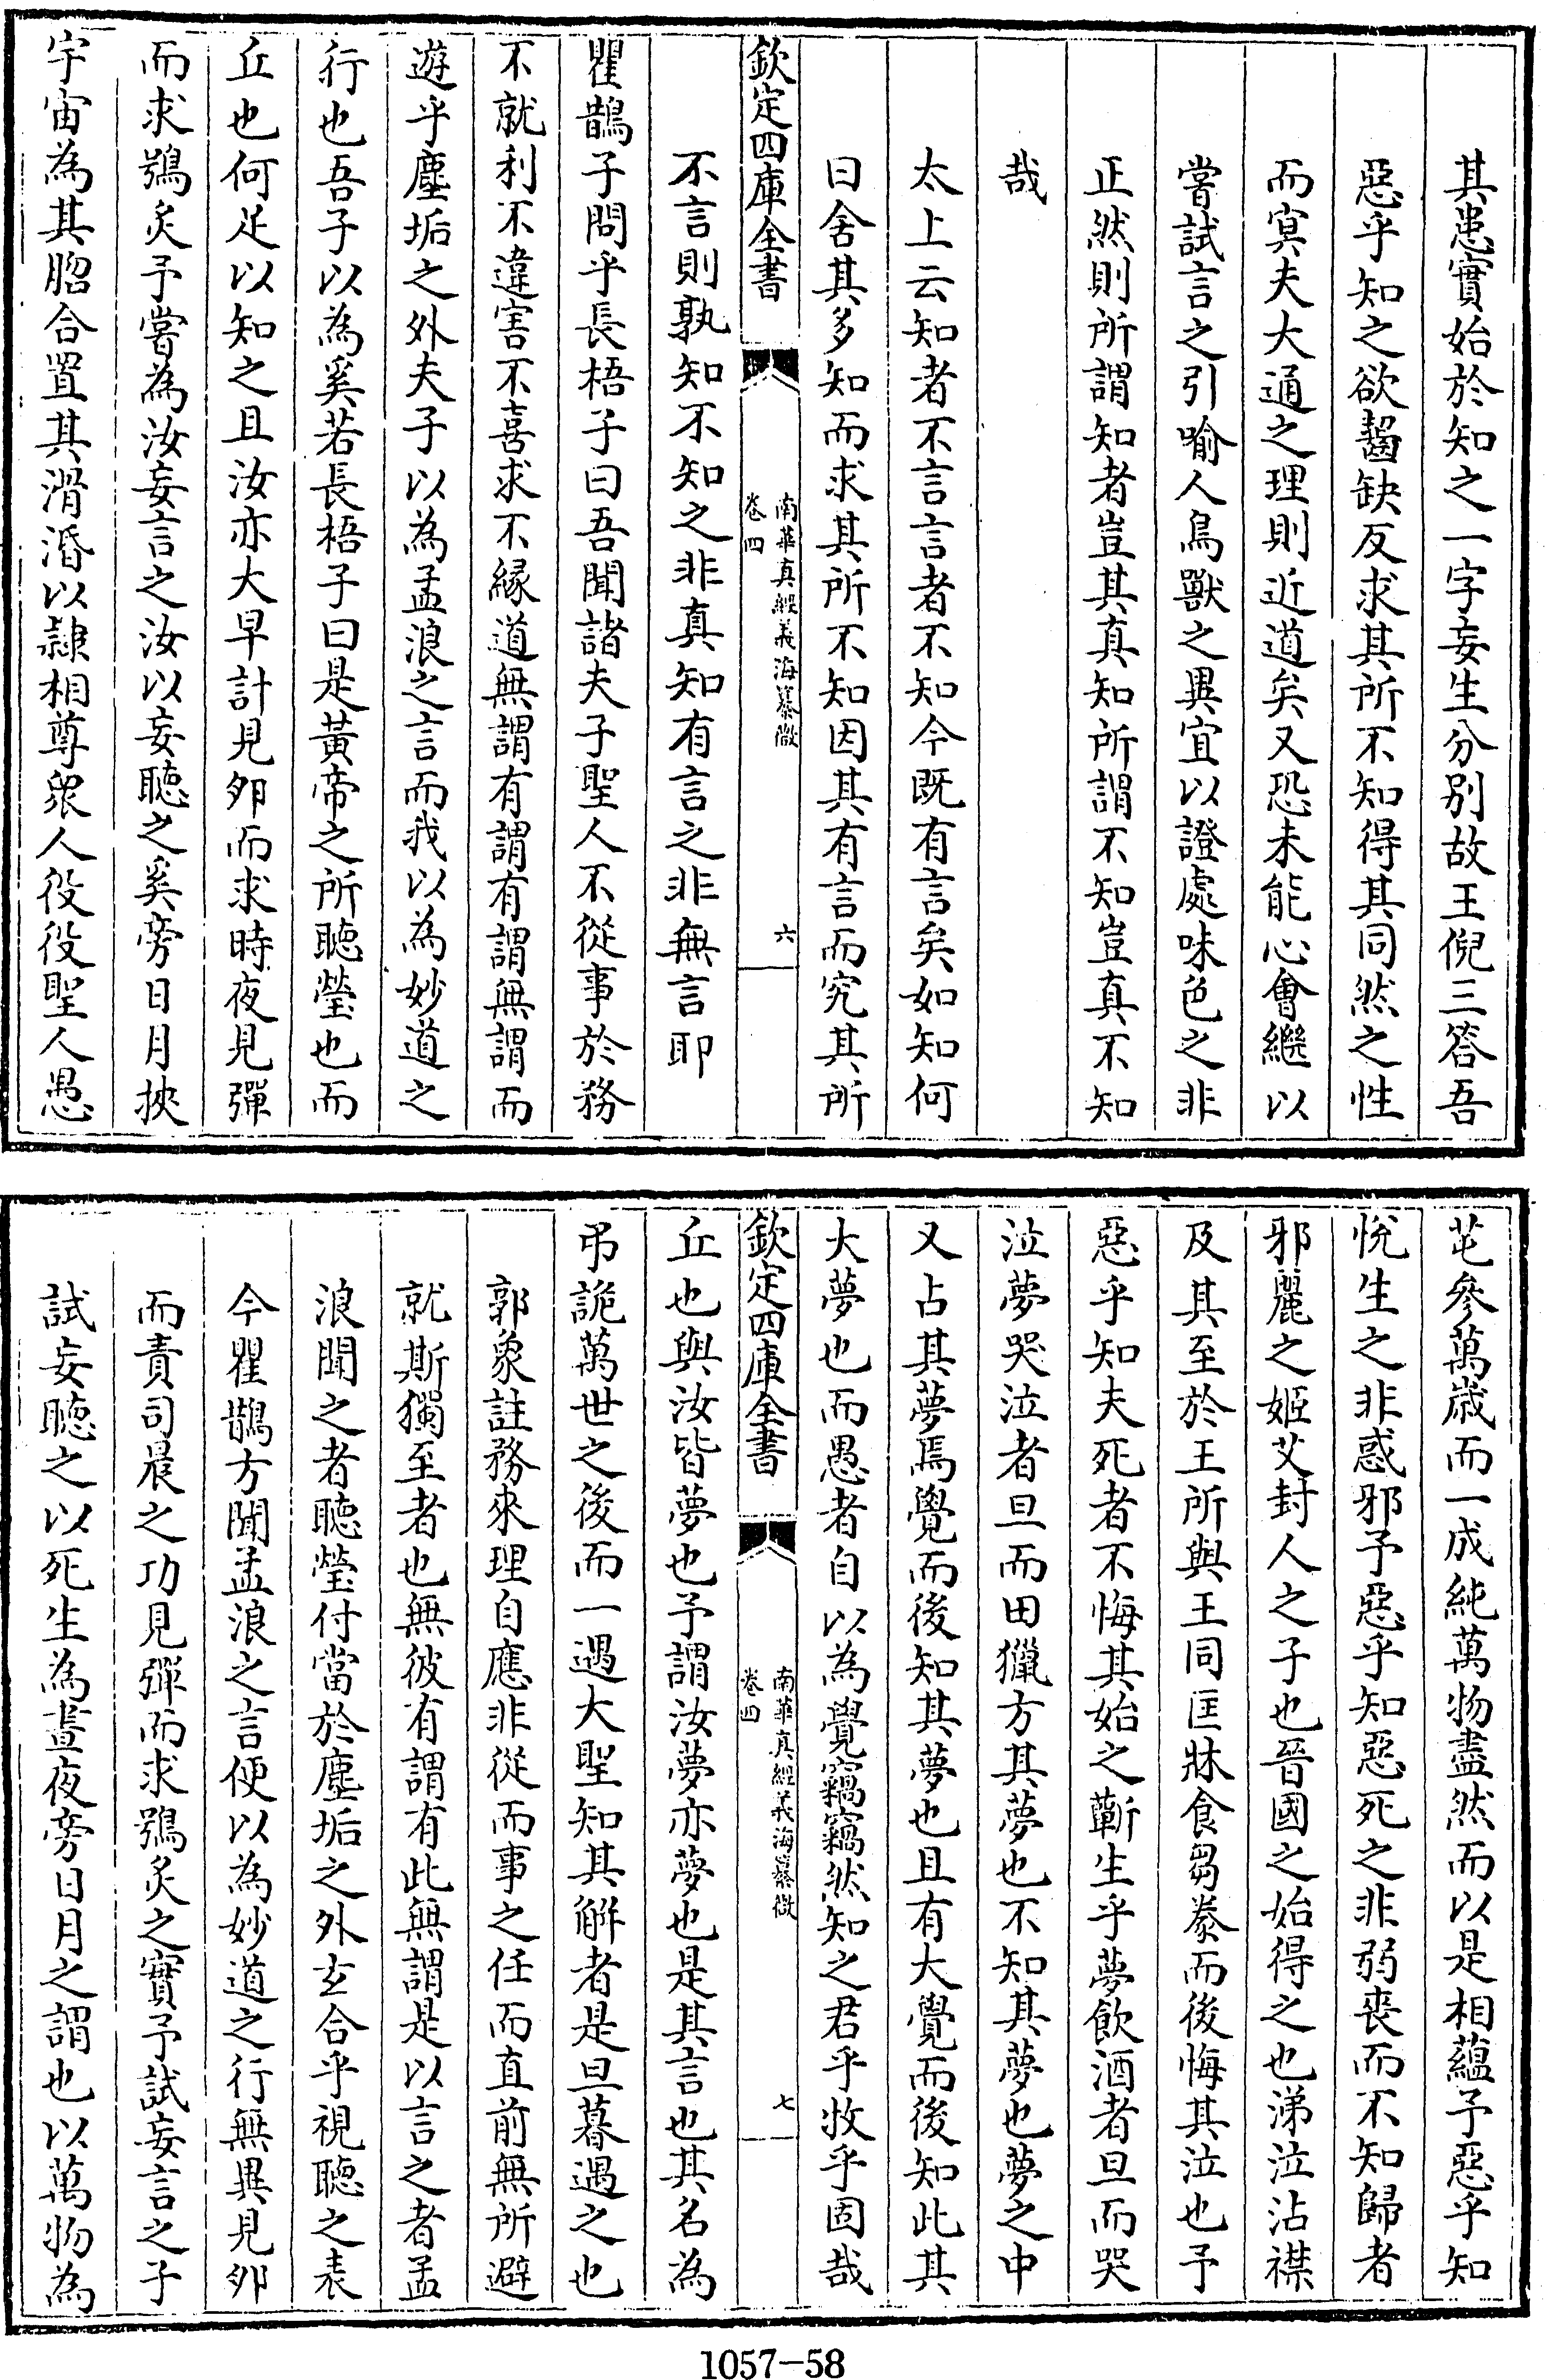 其患實始於知之一字妄生分別故王倪三答吾
惡乎知之欲齧缺反求其所不知得其同然之性
而㝠夫大通之理則近道矣又恐未能心會繼以
嘗試言之引喻人鳥獸之異宜以證處味色之非
正然則所謂知者豈其真知所謂不知豈真不知
哉
太上云知者不言言者不知今既有言矣如知何
曰舍其多知而求其所不知因其有言而究其所
欽定四庫全書
南華真經義海纂微
卷四
六
不言則孰知不知之非真知有言之非無言耶
瞿鵲子問乎長梧子曰吾聞諸夫子聖人不從事於務
不就利不違害不喜求不緣道無謂有謂有謂無謂而
遊乎塵垢之外夫子以為孟浪之言而我以為妙道之
行也吾子以為奚若長梧子曰是黃帝之所聽瑩也而
丘也何足以知之且汝亦大早計見卵而求時夜見彈
而求鴞炙予嘗為汝妄言之汝以妄聽之奚旁日月挾
宇宙為其脗合置其滑涽以隷相尊衆人役役聖人愚
芚參萬歲而一成純萬物盡然而以是相蘊予惡乎知
悅生之非惑邪予惡乎知惡死之非弱喪而不知歸者
邪麗之姬艾封人之子也晉國之始得之也涕泣沾襟
及其至於王所與王同匡牀食芻豢而後悔其泣也予
惡乎知夫死者不悔其始之蘄生乎夢飲酒者旦而哭
泣夢哭泣者旦而田獵方其夢也不知其夢也夢之中
又占其夢焉覺而後知其夢也且有大覺而後知此其
大夢也而愚者自以為覺竊竊然知之君乎牧乎固哉
欽定四庫全書
南華真經義海纂微
卷四
七
丘也與汝皆夢也予謂汝夢亦夢也是其言也其名為
弔詭萬世之後而一遇大聖知其解者是旦暮遇之也
郭象註務來理自應非從而事之任而直前無所避
就斯獨至者也無彼有謂有此無謂是以言之者孟
浪聞之者聽瑩付當於塵垢之外玄合乎視聽之表
今瞿鵲方聞孟浪之言便以為妙道之行無異見卵
而責司晨之功見彈而求鴞炙之實予試妄言之子
試妄聽之以死生為晝夜旁日月之謂也以萬物為
1057-58